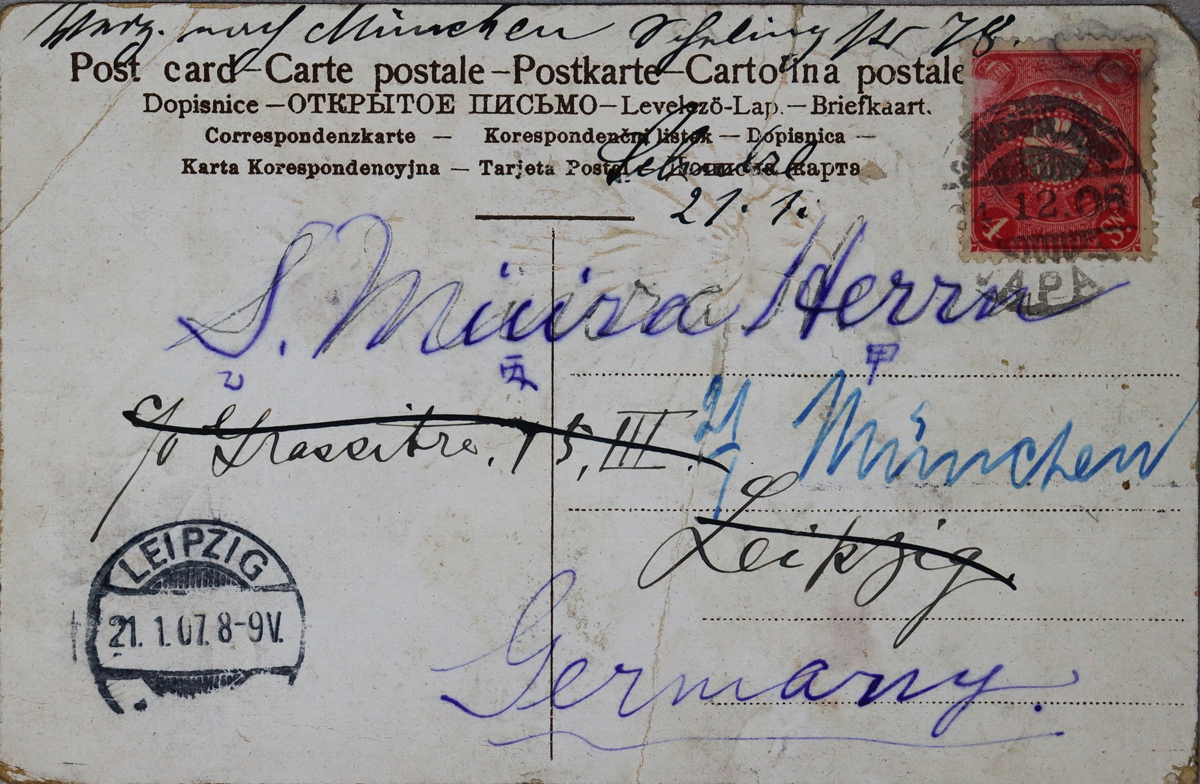 Verz. nach München Schelingstr 78.
Post card–Carte postale–Postkarte–Cartolina postale
Dopisnice–ОТКРЫТОЕ ПИСЬМО–Levelező-Lap.–Briefkaart.
Correspondenzkarte – Korespondenční lístek – Dopisnica –
Karta Korespondencyjna – Tarjeta Postal – Почтовая карта
21. 1.
12.06
4 Sn
JAPA
S. Miura Herrn
乙 丙 甲
c/o Grassistre. 15, III.
21/1 München
Leipzig
LEIPZIG
21. 1. 07. 8-9V.
Germany.